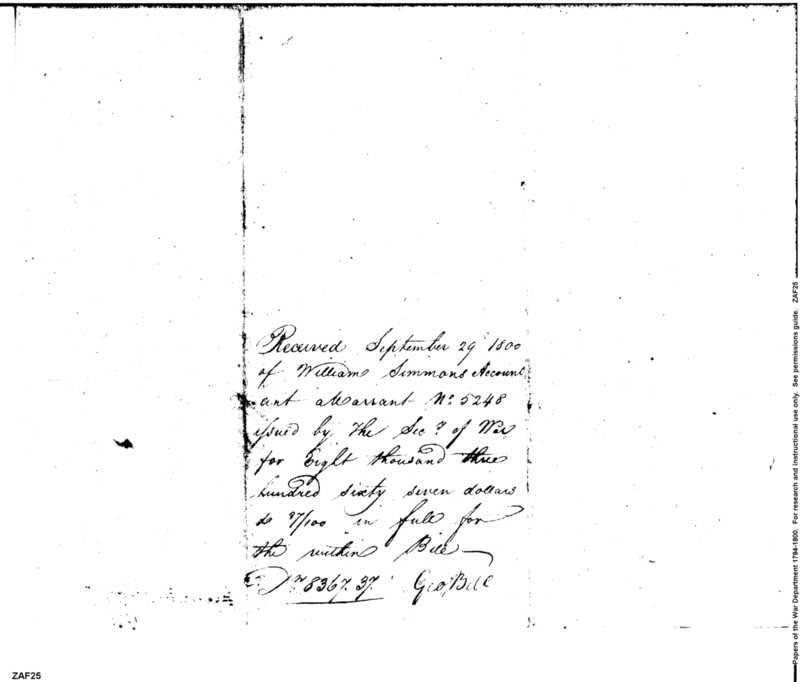 Received September 29 1800
of William Simmons Account
ant a Warrant No. 5248
issued by the Secy. of War
for Eight thousand three
hundred sixty seven dollars
& 37/100 in full for
the within Bill
Drs 8367.37. Geo. Bill
Papers of the War Department 1784-1800. For research and instructional use only. See permissions guide. ZAF25
ZAF25